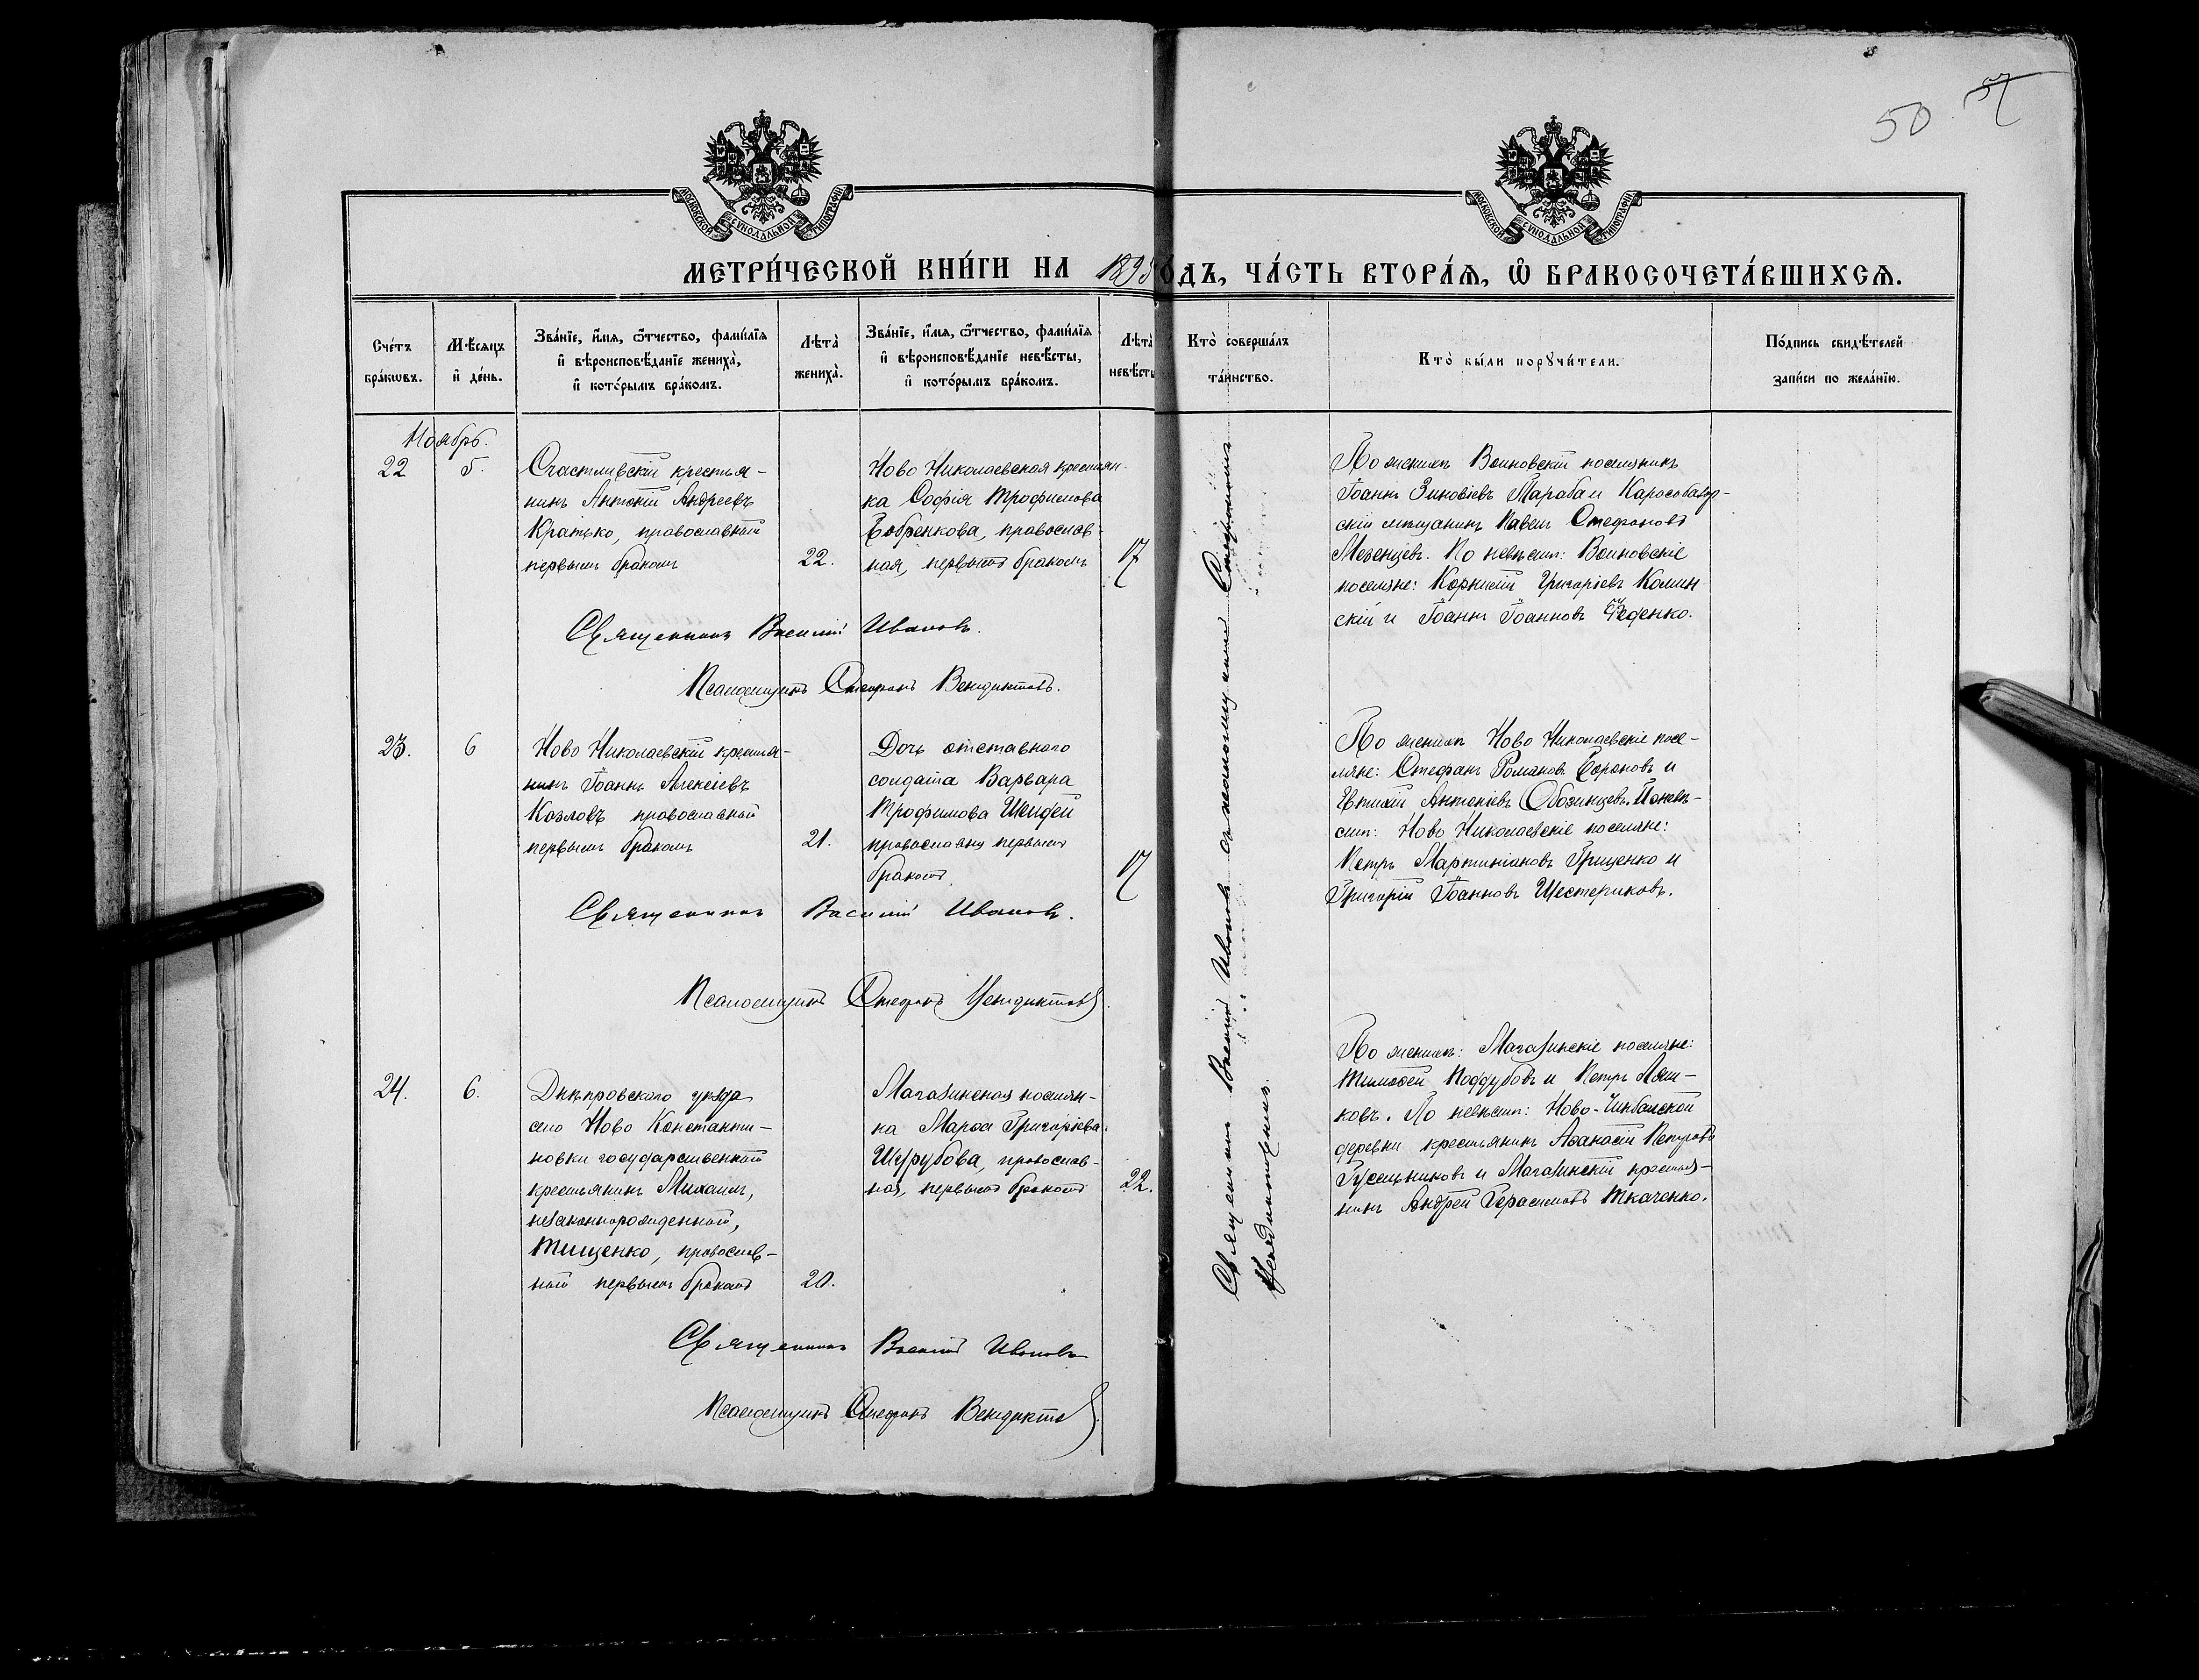 50 57
МОСКОВСКОЙ СѴНОДАЛЬНОЙ ТИПОГРАФІИ
МОСКОВСКОЙ СѴНОДАЛЬНОЙ ТИПОГРАФІИ
МЕТРИ́ЧЕСКОЙ КНИ́ГИ НА 1895
ОДЪ, ЧА́СТЬ ВТОРА́Я, Ѡ БРАКОСОЧЕТА́ВШИХСЯ.
Сче́тъ бра́кѡвъ.
Мѣ́сяцъ и де́нь.
Зва́нїе, и́мя, ѻ́тчество, фами́лїя
и вѣроисповѣ́данїе жениха̀,
и кото́рымъ бра́комъ.
Лѣ́та̀ жениха̀.
Зва́нїе, и́мя, ѻ́тчество, фами́лїя
и вѣроисповѣ́данїе невѣ́сты,
и кото́рымъ бра́комъ.
Лѣ́та̀ невѣ́сты
Кто̀ соверша́лъ
та́инство.
Кто̀ бы́ли порꙋчи́тели.
По́дпись свидѣ́телей
за́писи по жела́нїю.
Ноябрь.
22 5.
Счастливскій крестья-
нинъ Антоній Андреевъ
Кратько, православный
первымъ бракомъ
22.
Ново Николаевская крестьян-
ка Софія Трофимова
Бобренкова, православ-
ная, первымъ бракомъ
17
По женихѣ Воиновскій поселянинъ
Іоаннъ Зиновіевъ Марабаи Карасобазар-
скій мѣщанинъ Павелъ Стефановъ
Мезенцевъ. По невѣстѣ: Воиновскіе
поселяне: Корнилій Григоріевъ Комин-
скій и Іоаннъ Іоанновъ Феденко.
Священникъ Василій Ивановъ.
Псаломщикъ Стефанъ Вендиктовъ.
23. 6
Ново Николаевскій крестья-
нинъ Іоаннъ Алексіевъ
Козловъ православный
первымъ бракомъ
21.
Дочь отставного
солдата Варвара
Трофимова Шендей
православна первымъ
бракомъ
17
По женихѣ Ново Николаевскіе посе-
ляне: Стефанъ Романовъ и
Евтихій Антоніевъ Обозинцевъ. По невѣ-
стѣ: Ново Николаевскіе поселяне:
Петръ Мартиніановъ Гриценко и
Григорій Іоанновъ Шестериковъ.
Священникъ Василій Ивановъ.
Псаломщикъ Стефанъ Вендиктовъ.
24. 6.
Днѣпровского уѣзда
село Ново Константи-
новки государственный
крестьянинъ Михаилъ,
незаконнорожденный,
Тищенко, православ-
ный первымъ бракомъ
20.
Магазинская поселян-
ка Марфа Григоріева
Шурубова, православ-
ная, первымъ бракомъ
22.
По женихѣ: Магазинскіе поселяне:
Тимофей Поддубовъ и Петръ Ляш-
ковъ. По невѣстѣ: Ново-Чинбайской
деревни крестьянинъ Афанасій Петровъ
Гусельниковъ и Магазинскій крестья-
нинъ Андрей Герасимовъ Ткаченко.
Священникъ Василій Ивановъ
Псаломщикъ Стефанъ Вендиктовъ.
Священникъ Василій Ивановъ съ псаломщикомъ Стефаномъ
Вендиктовымъ.